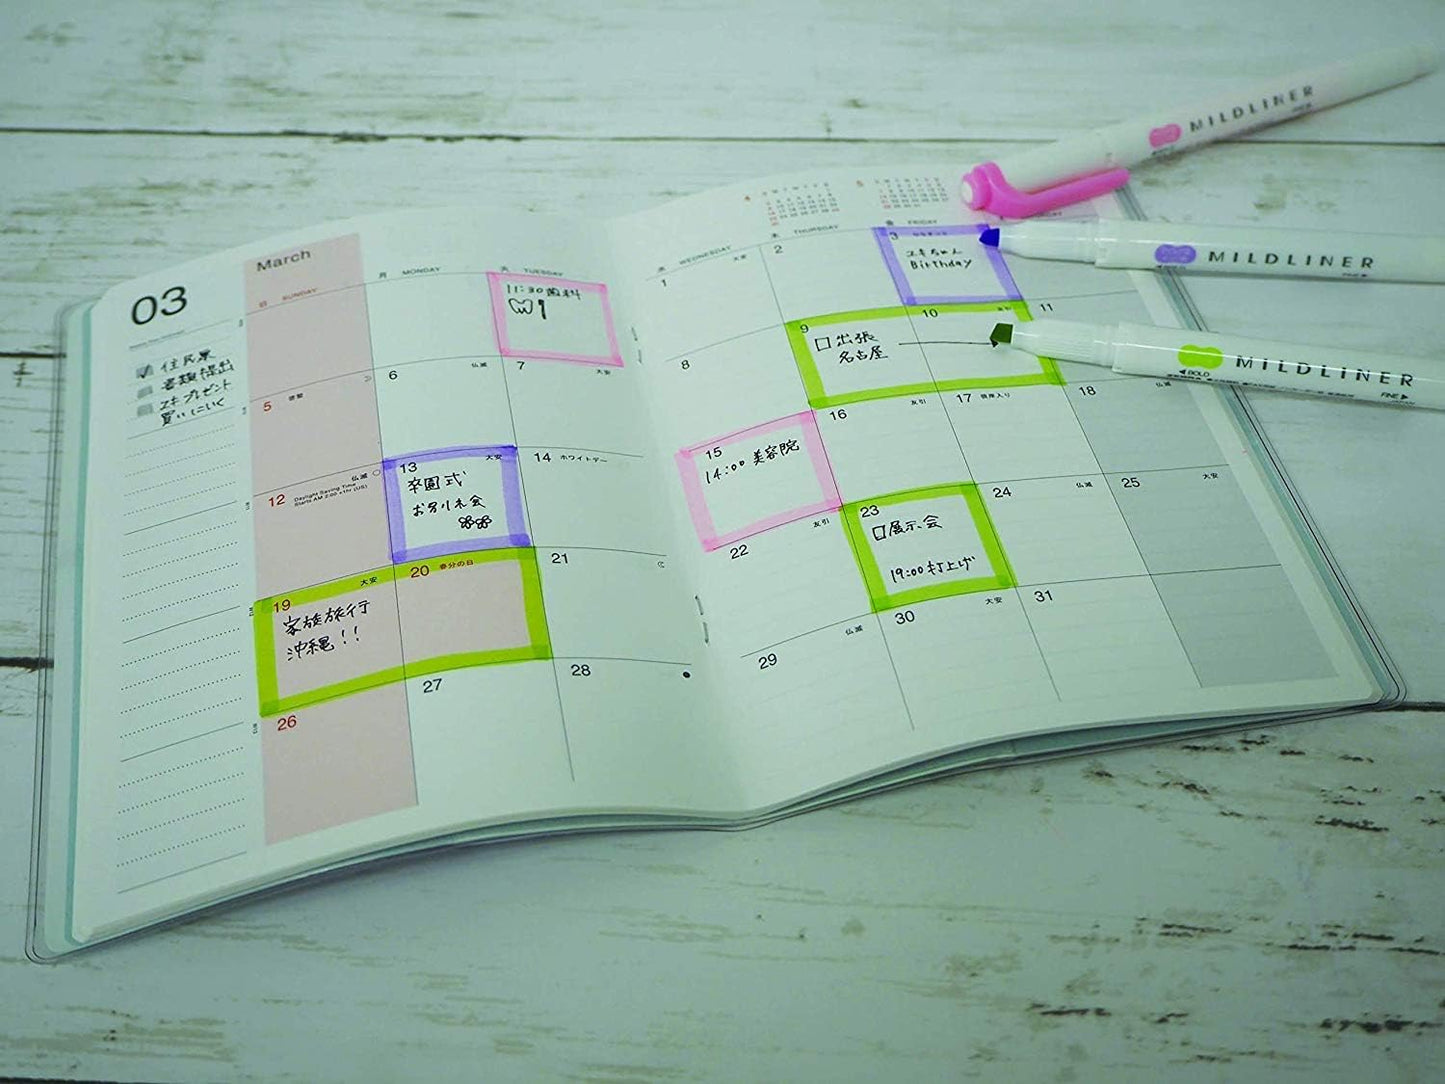 03
March
住民票
書類提出
ユキプレゼント
買いにいく
日 SUNDAY
月 MONDAY
火 TUESDAY
水 WEDNESDAY
木 THURSDAY
金 FRIDAY
11:30 歯科
1
大安
2
3
ユキちゃん
Birthday
5
6
仏滅
7
大安
8
9
出張
名古屋
10
友引
11
12
Daylight Saving Time
Starts AM 2:00 +1hr (US)
仏滅
13
大安
卒園式
お別れ会
14 ホワイトデー
15
14:00 美容院
16
友引
17
18
仏滅
19
大安
家族旅行
沖縄!!
20 春分の日
21
22
友引
23
展示会
19:00 打上げ
24
仏滅
25
大安
26
27
28
29
仏滅
30
大安
31
MILDLINER
MILDLINER
FINE
MILDLINER
BOLD
FINE